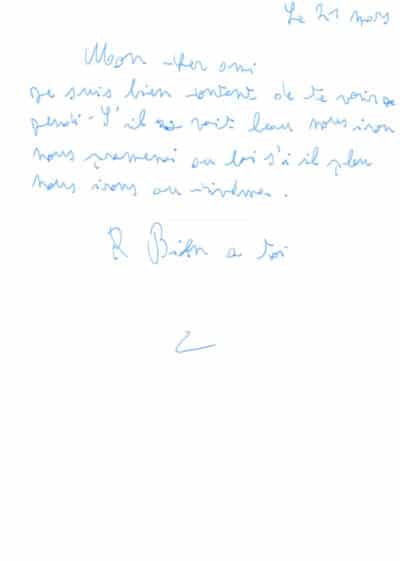 Le 21 mars
Mon cher ami
je suis bien content de te voir
jeudi. S'il fait beau nous iron
nous promener au boi s'i il pleu
nous irons au cinéma.
Bien a toi